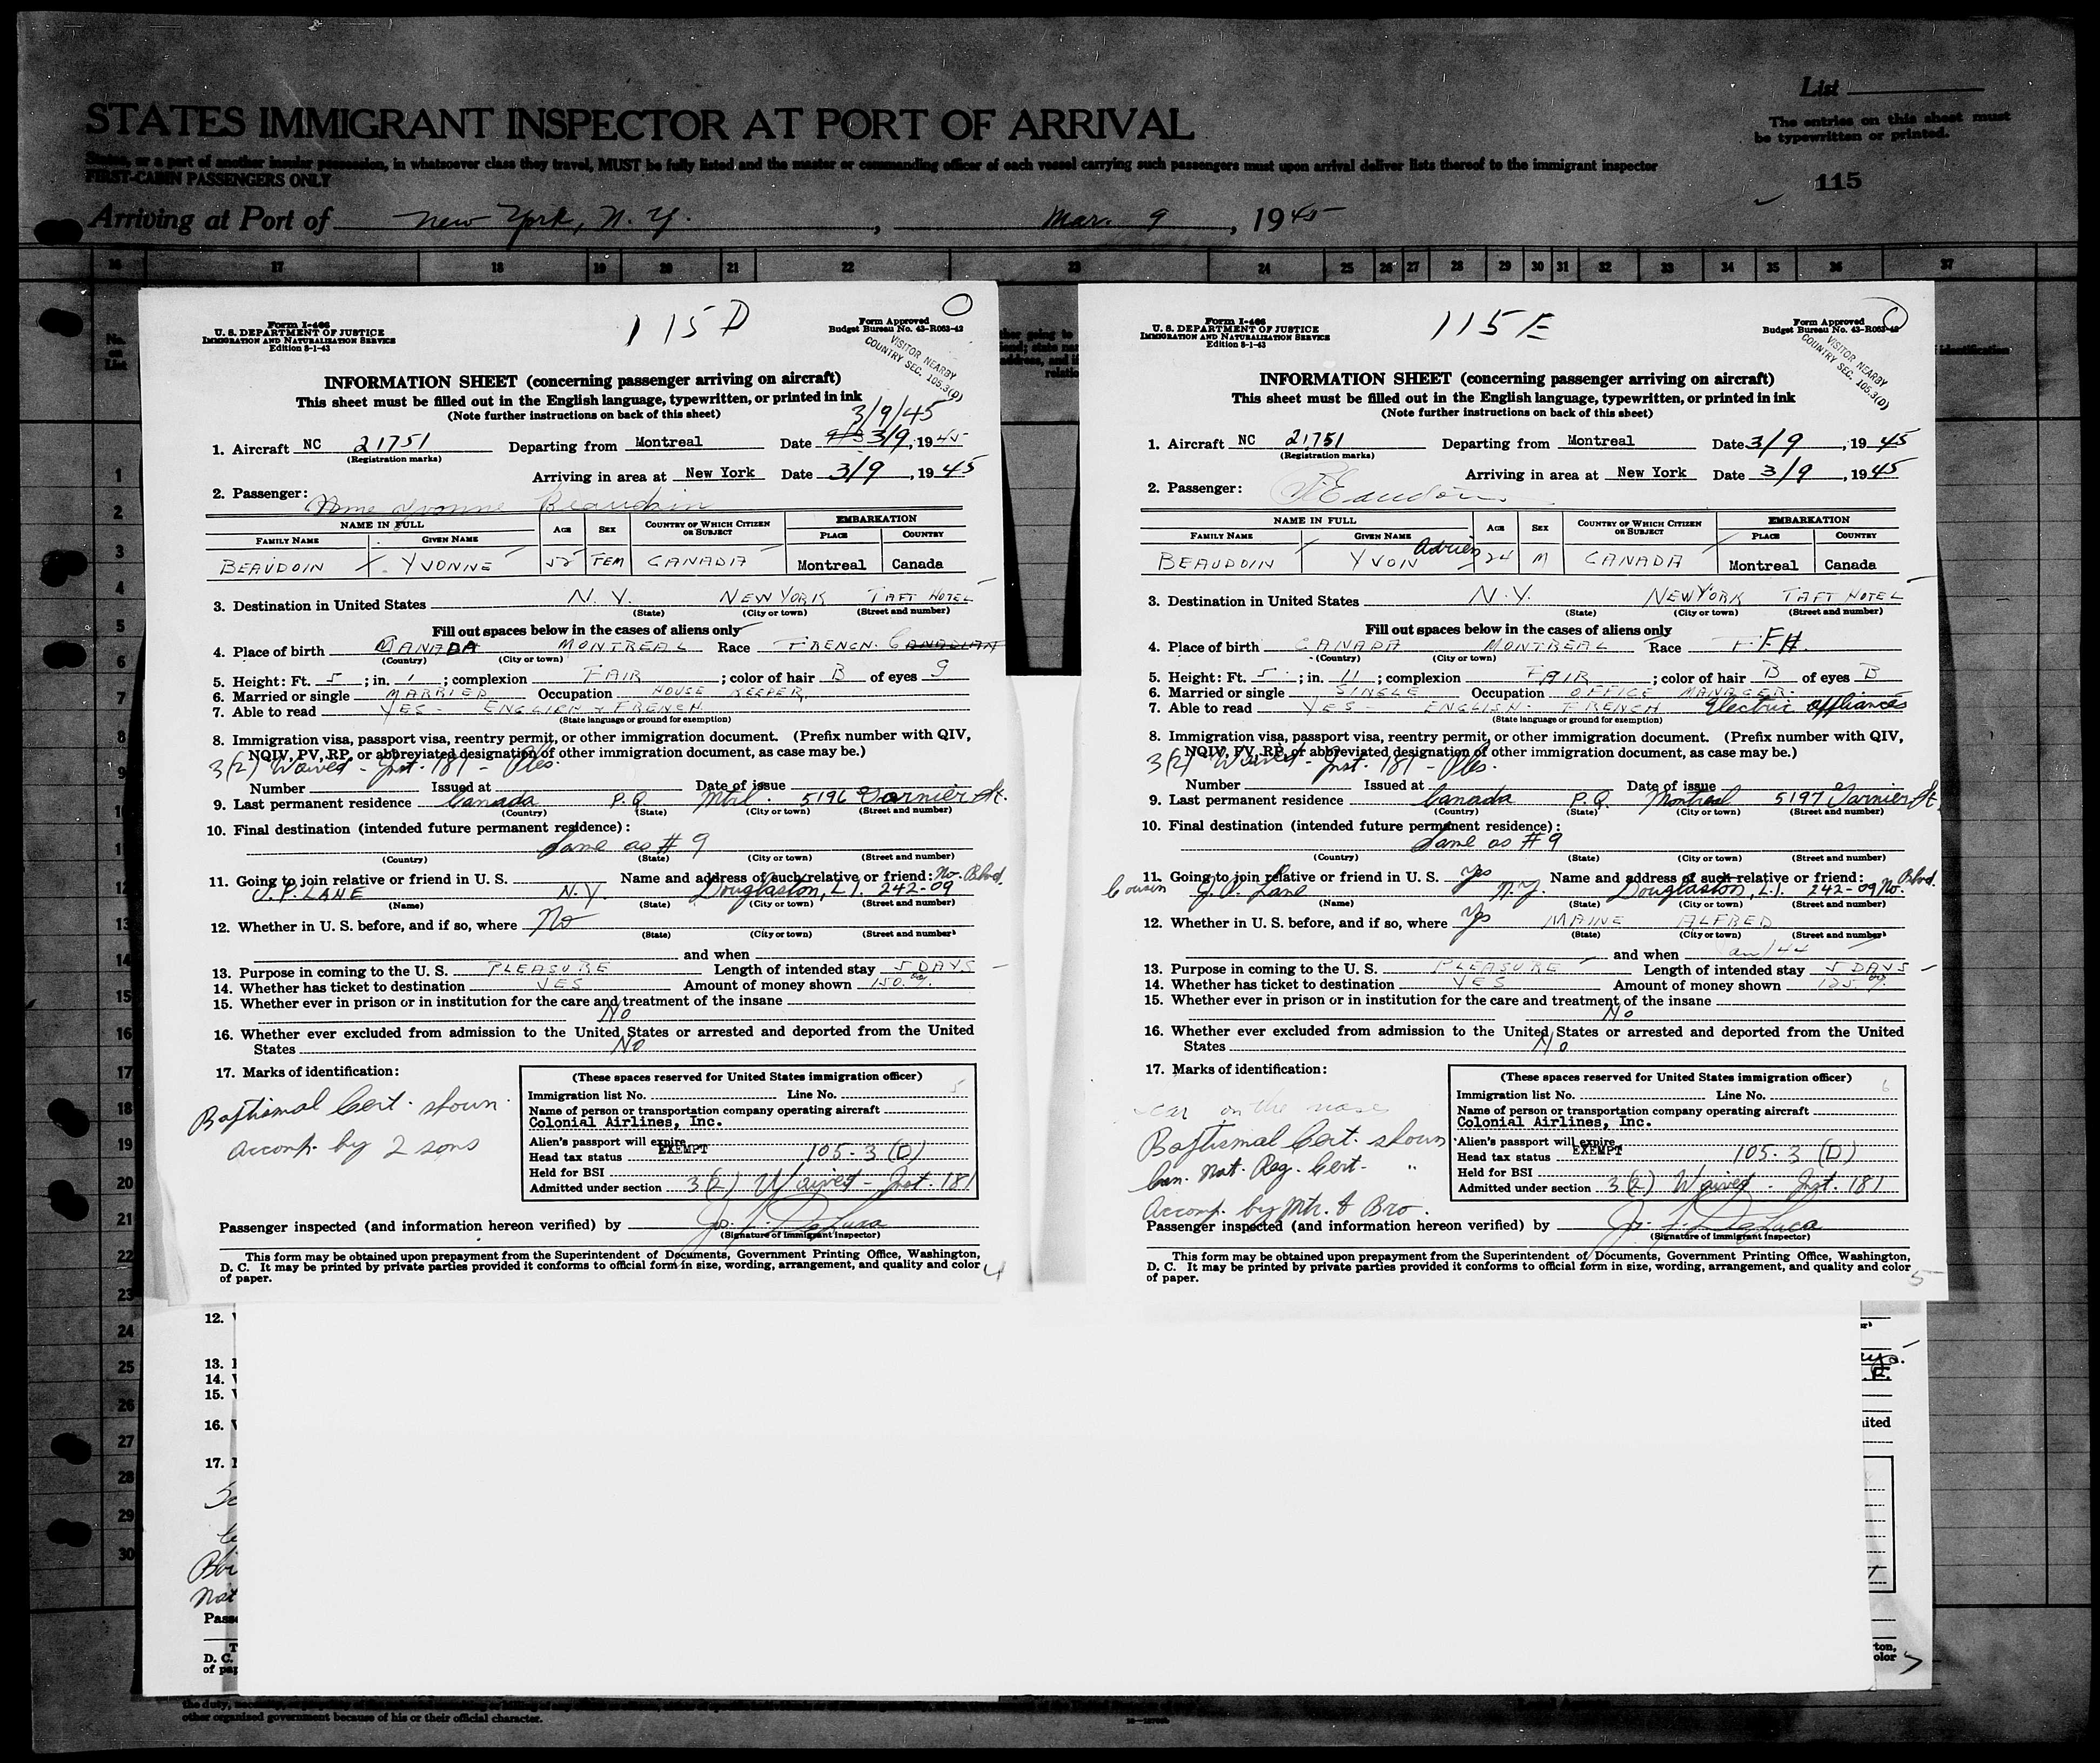 List
STATES IMMIGRANT INSPECTOR AT PORT OF ARRIVAL
The entries on this sheet must
be typewritten or printed.
States, or a part of another insular possession, in whatsoever class they travel, MUST be fully listed and the master or commanding officer of each vessel carrying such passengers must upon arrival deliver lists thereof to the immigrant inspector
FIRST-CABIN PASSENGERS ONLY
115
Arriving at Port of New York, N. Y., Mar. 9, 1945
16 17 18 19 20 21 22 23 24 25 26 27 28 29 30 31 32 33 34 35 36 37
No.
on
List
1
2
3
4
5
6
7
8
9
10
11
12
13
14
15
16
17
18
19
20
21
22
23
24
25
26
27
28
29
30
115 D
Form I-466
U. S. DEPARTMENT OF JUSTICE
IMMIGRATION AND NATURALIZATION SERVICE
Edition 8-1-43
Form Approved
Budget Bureau No. 43-R063-42
VISITOR NEARBY
COUNTRY SEC. 105.3(D)
INFORMATION SHEET (concerning passenger arriving on aircraft)
This sheet must be filled out in the English language, typewritten, or printed in ink
(Note further instructions on back of this sheet)
3/9/45
1. Aircraft NC 21751 Departing from Montreal Date 3/9, 1945
(Registration marks)
Arriving in area at New York Date 3/9, 1945
2. Passenger: Mme Yvonne Beaudoin
NAME IN FULL AGE SEX COUNTRY OF WHICH CITIZEN OR SUBJECT EMBARKATION
FAMILY NAME GIVEN NAME PLACE COUNTRY
BEAUDOIN YVONNE 52 FEM CANADA Montreal Canada
3. Destination in United States N.Y. NEW YORK TAFT HOTEL
(State) (City or town) (Street and number)
Fill out spaces below in the cases of aliens only
4. Place of birth CANADA MONTREAL Race FRENCH CANADIAN
(Country) (City or town)
5. Height: Ft. 5; in. 1; complexion FAIR; color of hair B of eyes G
6. Married or single MARRIED Occupation HOUSE KEEPER
7. Able to read YES - ENGLISH & FRENCH
(State language or ground for exemption)
8. Immigration visa, passport visa, reentry permit, or other immigration document. (Prefix number with QIV,
NQIV, PV, RP, or abbreviated designation of other immigration document, as case may be.)
3(2) Waived - Inst. 181 - Ples.
Number Issued at Date of issue
9. Last permanent residence Canada P.Q. Mtrl. 5196 Garnier St.
(Country) (State) (City or town) (Street and number)
10. Final destination (intended future permanent residence):
Same as #9
(Country) (State) (City or town) (Street and number)
11. Going to join relative or friend in U. S. Name and address of such relative or friend: No. Blvd.
J.P. LANE N.Y. Douglaston, L.I. 242-09
(Name) (State) (City or town) (Street and number)
12. Whether in U. S. before, and if so, where No
(State) (City or town) (Street and number)
and when
13. Purpose in coming to the U. S. PLEASURE Length of intended stay 5 DAYS
14. Whether has ticket to destination YES Amount of money shown 150.00
15. Whether ever in prison or in institution for the care and treatment of the insane
No
16. Whether ever excluded from admission to the United States or arrested and deported from the United
States No
17. Marks of identification:
Baptismal Cert. shown
Accomp. by 2 sons
(These spaces reserved for United States immigration officer)
Immigration list No. Line No. 5
Name of person or transportation company operating aircraft
Colonial Airlines, Inc.
Alien's passport will expire
Head tax status EXEMPT 105-3 (D)
Held for BSI
Admitted under section 3(2) Waived - Inst. 181
Passenger inspected (and information hereon verified) by Jos. F. DeLuca
(Signature of immigrant inspector)
This form may be obtained upon prepayment from the Superintendent of Documents, Government Printing Office, Washington,
D. C. It may be printed by private parties provided it conforms to official form in size, wording, arrangement, and quality and color
of paper.
4
115 E
Form I-466
U. S. DEPARTMENT OF JUSTICE
IMMIGRATION AND NATURALIZATION SERVICE
Edition 8-1-43
Form Approved
Budget Bureau No. 43-R063-42
VISITOR NEARBY
COUNTRY SEC. 105.3(D)
INFORMATION SHEET (concerning passenger arriving on aircraft)
This sheet must be filled out in the English language, typewritten, or printed in ink
(Note further instructions on back of this sheet)
1. Aircraft NC 21751 Departing from Montreal Date 3/9, 1945
(Registration marks)
Arriving in area at New York Date 3/9, 1945
2. Passenger:
NAME IN FULL AGE SEX COUNTRY OF WHICH CITIZEN OR SUBJECT EMBARKATION
FAMILY NAME GIVEN NAME PLACE COUNTRY
BEAUDOIN YVON Adrien 24 M CANADA Montreal Canada
3. Destination in United States N.Y. NEW YORK TAFT HOTEL
(State) (City or town) (Street and number)
Fill out spaces below in the cases of aliens only
4. Place of birth CANADA MONTREAL Race FH.
(Country) (City or town)
5. Height: Ft. 5; in. 11; complexion FAIR; color of hair B of eyes B
6. Married or single SINGLE Occupation OFFICE MANAGER.
7. Able to read YES - ENGLISH - FRENCH Electric appliances
(State language or ground for exemption)
8. Immigration visa, passport visa, reentry permit, or other immigration document. (Prefix number with QIV,
NQIV, PV, RP, or abbreviated designation of other immigration document, as case may be.)
3(2) Waived - Inst. 181 - Ples.
Number Issued at Date of issue
9. Last permanent residence Canada P.Q. Montreal 5197 Garnier St.
(Country) (State) (City or town) (Street and number)
10. Final destination (intended future permanent residence):
Same as #9
(Country) (State) (City or town) (Street and number)
11. Going to join relative or friend in U. S. Yes Name and address of such relative or friend: Blvd.
Cousin J. P. Lane N.Y. Douglaston, L.I. 242-09 No.
(Name) (State) (City or town) (Street and number)
12. Whether in U. S. before, and if so, where Yes MAINE ALFRED
(State) (City or town) (Street and number)
and when Jan/44
13. Purpose in coming to the U. S. PLEASURE Length of intended stay 5 DAYS
14. Whether has ticket to destination YES Amount of money shown
15. Whether ever in prison or in institution for the care and treatment of the insane
No
16. Whether ever excluded from admission to the United States or arrested and deported from the United
States No
17. Marks of identification:
scar on the nose
Baptismal Cert. shown
Can. Nat. Reg. Cert. "
Accomp. by Mtr. & Bro.
(These spaces reserved for United States immigration officer)
Immigration list No. Line No. 6
Name of person or transportation company operating aircraft
Colonial Airlines, Inc.
Alien's passport will expire
Head tax status EXEMPT 105-3 (D)
Held for BSI
Admitted under section 3(2) Waived - Inst. 181
Passenger inspected (and information hereon verified) by Jos. F. DeLuca
(Signature of immigrant inspector)
This form may be obtained upon prepayment from the Superintendent of Documents, Government Printing Office, Washington,
D. C. It may be printed by private parties provided it conforms to official form in size, wording, arrangement, and quality and color
of paper.
5
12.
13.
14.
15.
16.
17.
D. C.
of
other organized government because of his or their official character.